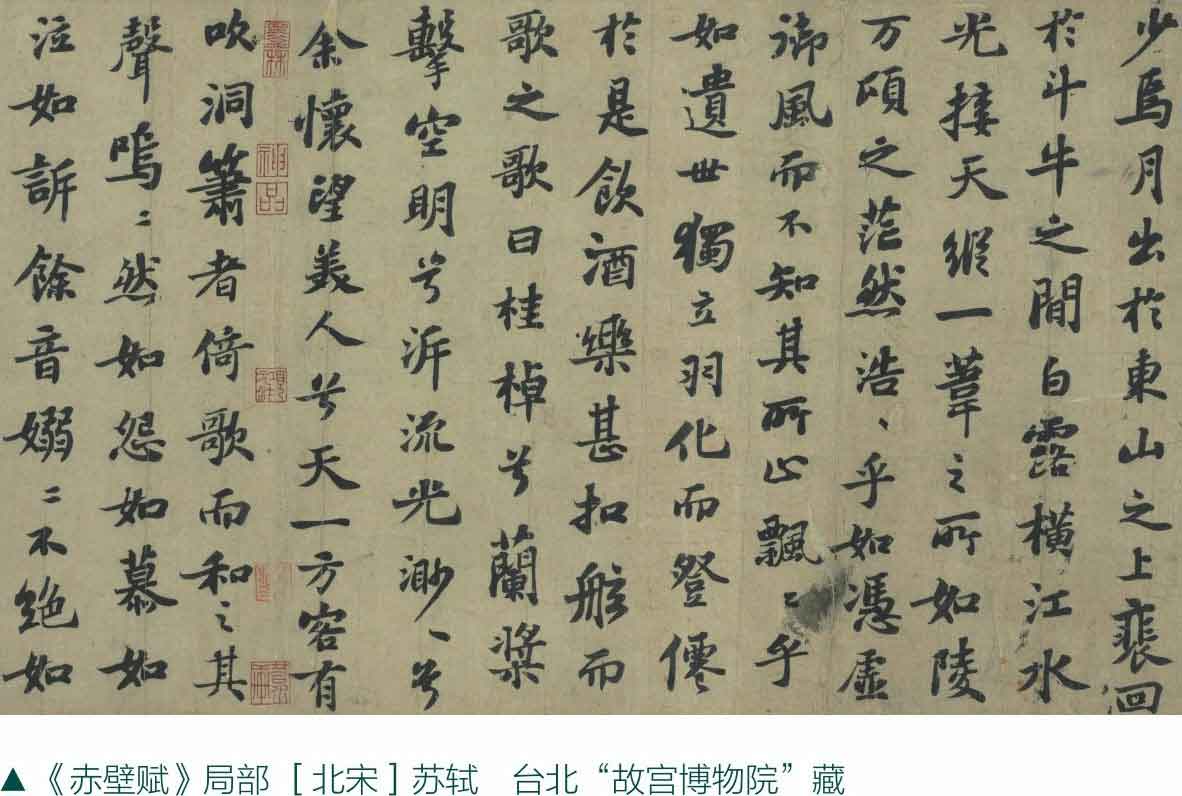 少焉月出於東山之上裴回
於斗牛之間白露橫江水
光接天縱一葦之所如陵
万頃之茫然浩、乎如憑虛
御風而不知其所止飄〻乎
如遺世獨立羽化而登僊
於是飲酒樂甚扣舷而
歌之歌曰桂棹兮蘭槳
擊空明兮泝流光渺、兮
余懷望美人兮天一方客有
神品
吹洞簫者倚歌而和之其
聲嗚〻然如怨如慕如
泣如訴餘音嫋〻不絶如
▲《赤壁赋》局部 [北宋] 苏轼 台北“故宫博物院”藏